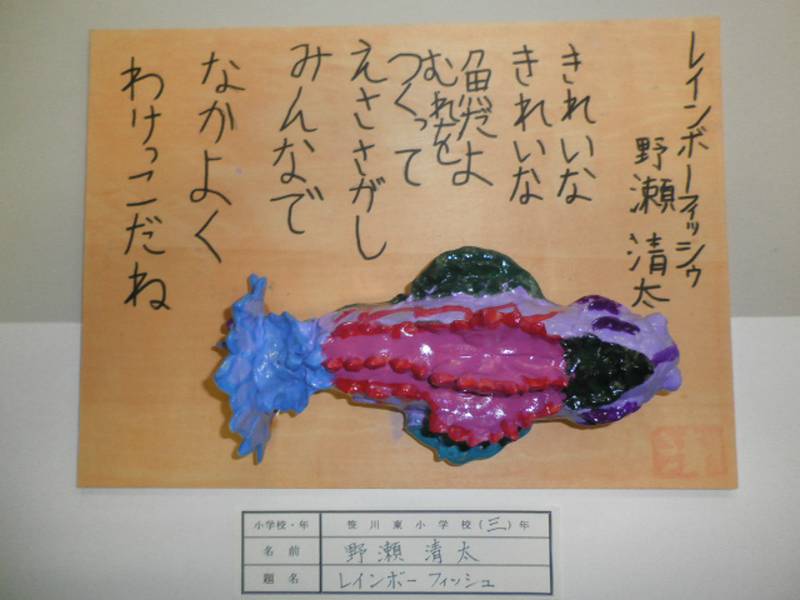 レインボーフィッシゥ
野瀬清太
きれいな
きれいな
魚だよ
むれを
つくって
えささがし
みんなで
なかよく
わけっこだね
小学校・年 笹川東小学校(三)年
名前 野瀬清太
題名 レインボーフィッシュ